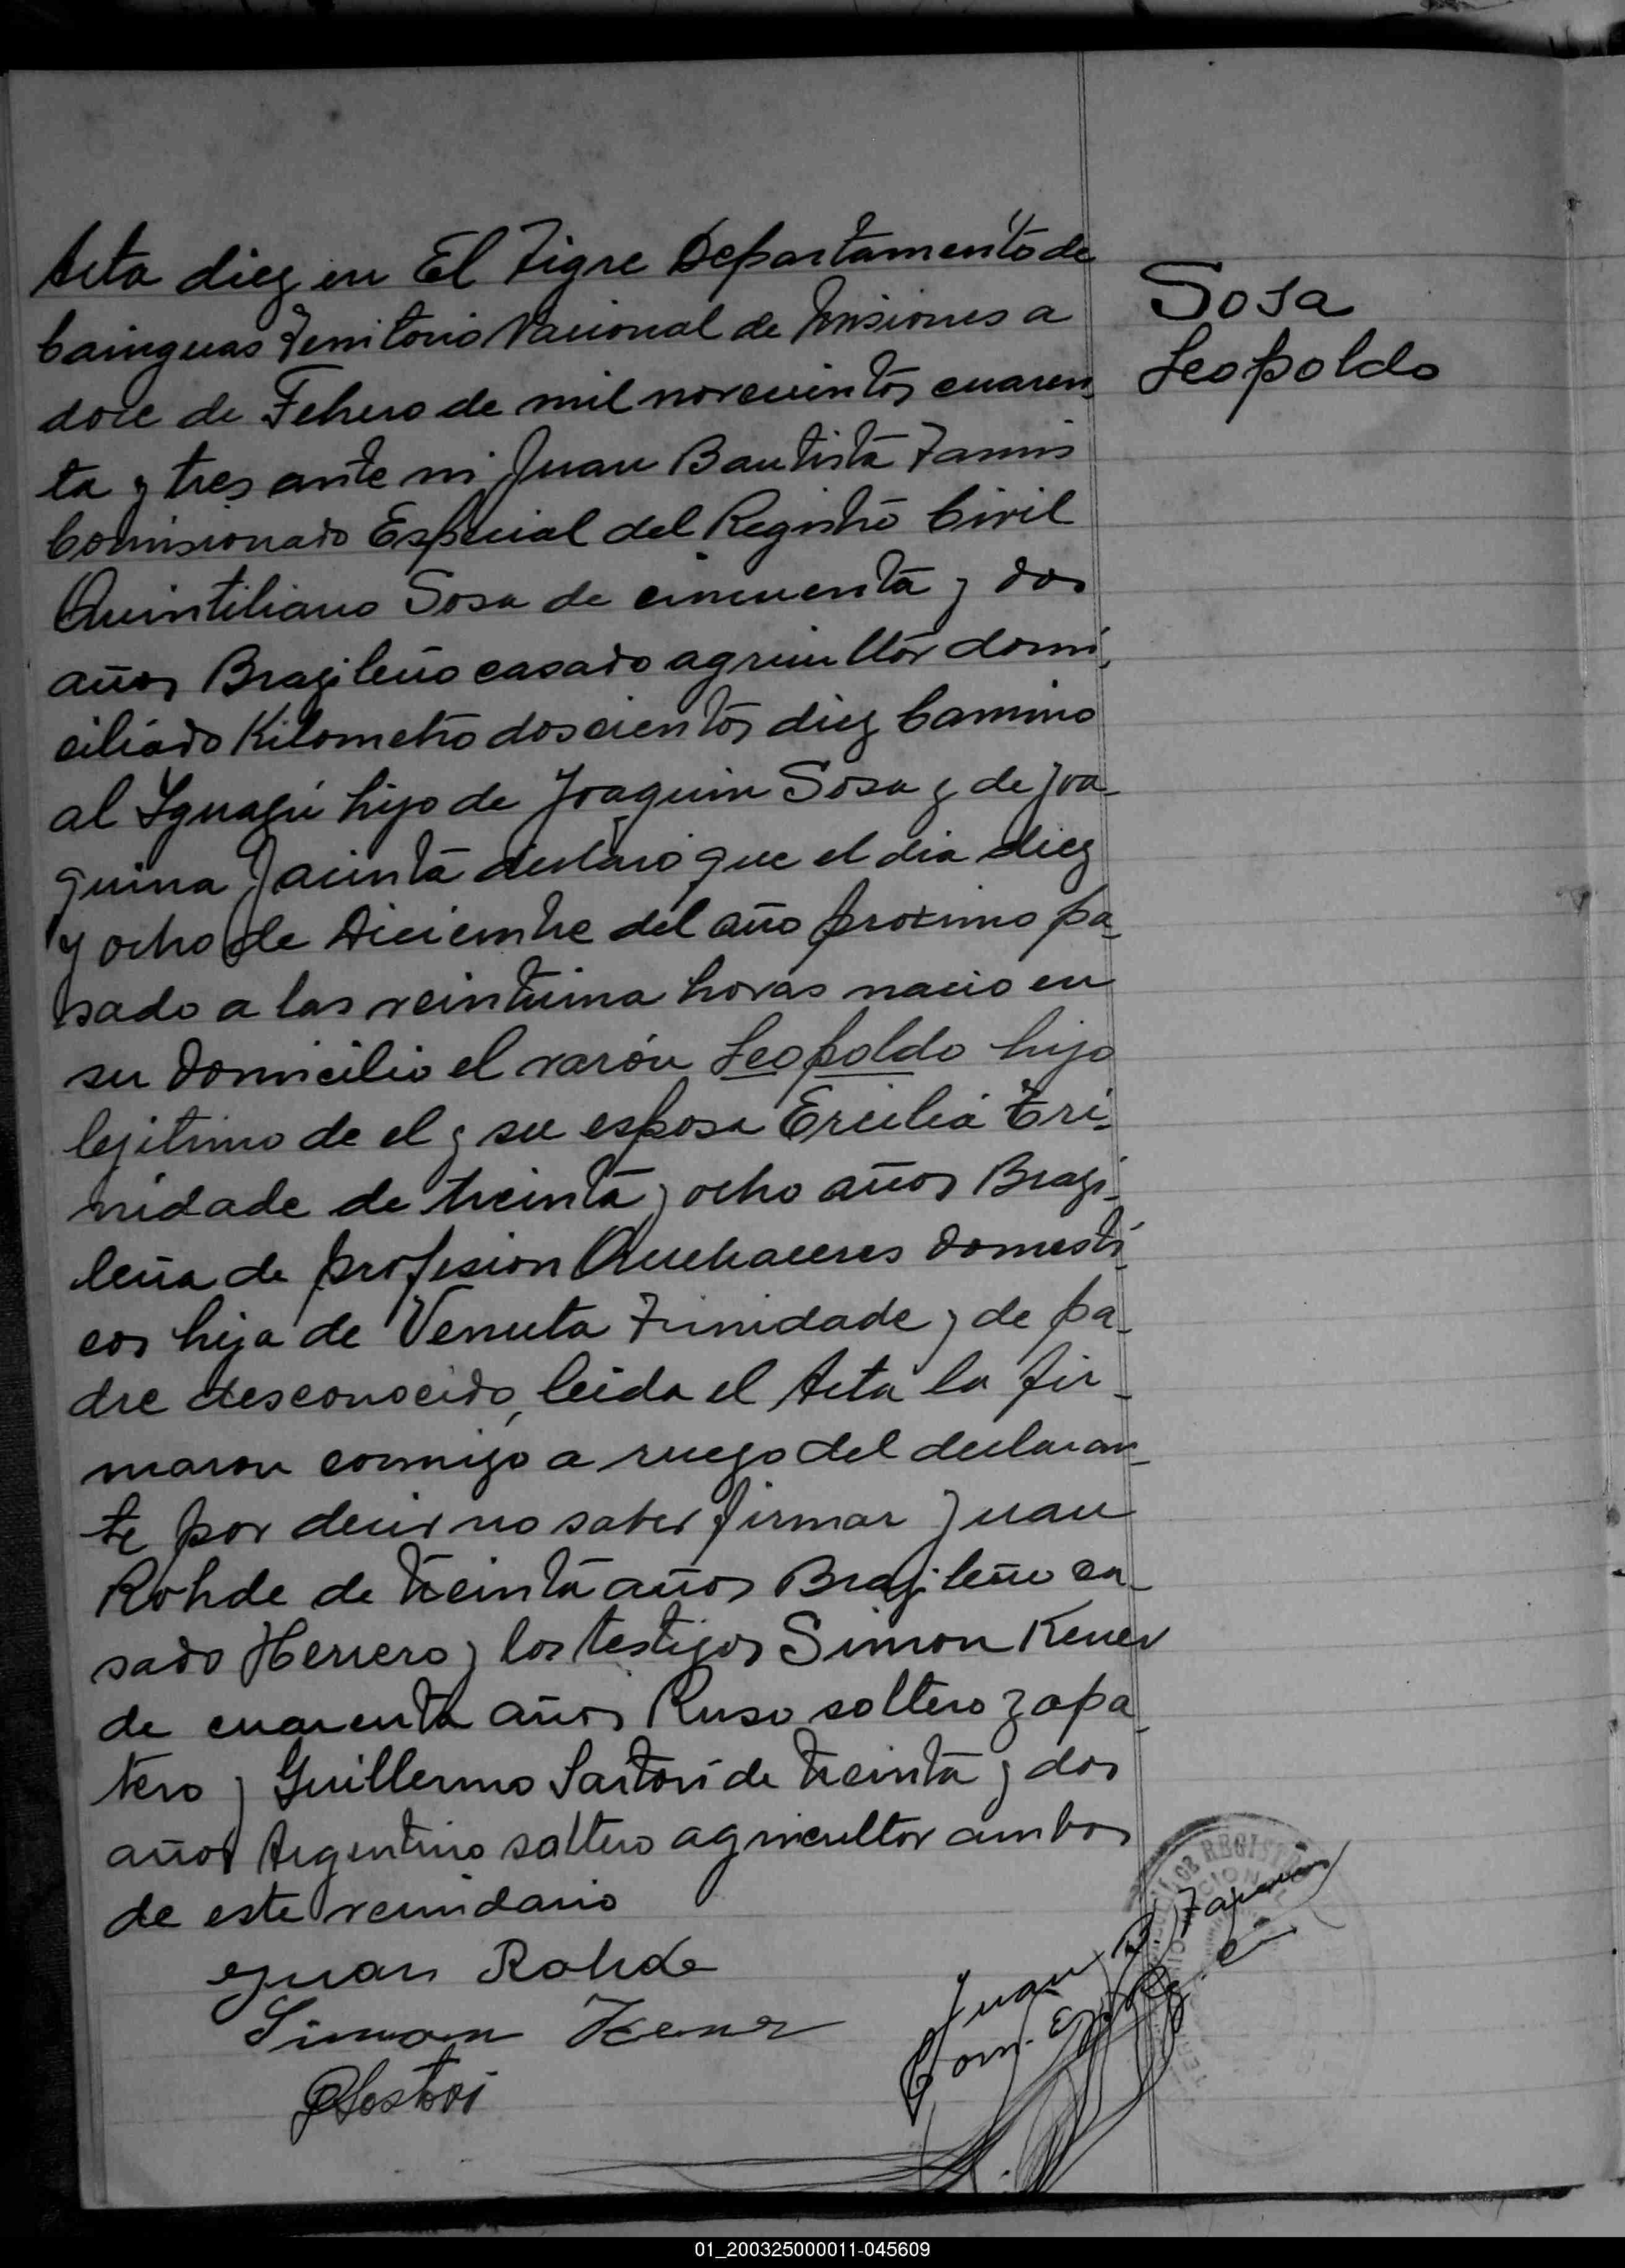 Acta diez en El Tigre Departamento de
Cainguas Territorio Nacional de Misiones a
doce de Febrero de mil novecientos cuaren-
ta y tres ante mi Juan Bautista
Comisionado Especial del Registro Civil
Quintiliano Sosa de cincuenta y dos
años Brazileño casado agricultor domi-
ciliado Kilometro doscientos diez Camino
al Iguazú hijo de Joaquin Sosa y de Joa-
quina Jacinta declaró que el dia diez
y ocho de Diciembre del año proximo pa-
sado a las veintiuna horas nacio en
su domicilio el varón Leopoldo hijo
lejitimo de el y su esposa Ercilia Tri-
nidade de treinta y ocho años Brazi-
leña de profesion Quehaceres domesti-
cos hija de Venuta Trinidade y de pa-
dre desconocido, leida el Acta la fir-
maron conmigo a ruego del declaran-
te por decir no saber firmar Juan
Rohde de treinta años Brazileño ca-
sado Herrero y los testigos Simon Kener
de cuarenta años Ruso soltero zapa-
tero y Guillermo Sartori de treinta y dos
años Argentino soltero agricultor ambos
de este vecindario
Juan Rohde
Simon Kener
GSartori
Sosa
Leopoldo
Juan B.
Com. Esp. Rg. C.
REGISTR
01_200325000011-045609